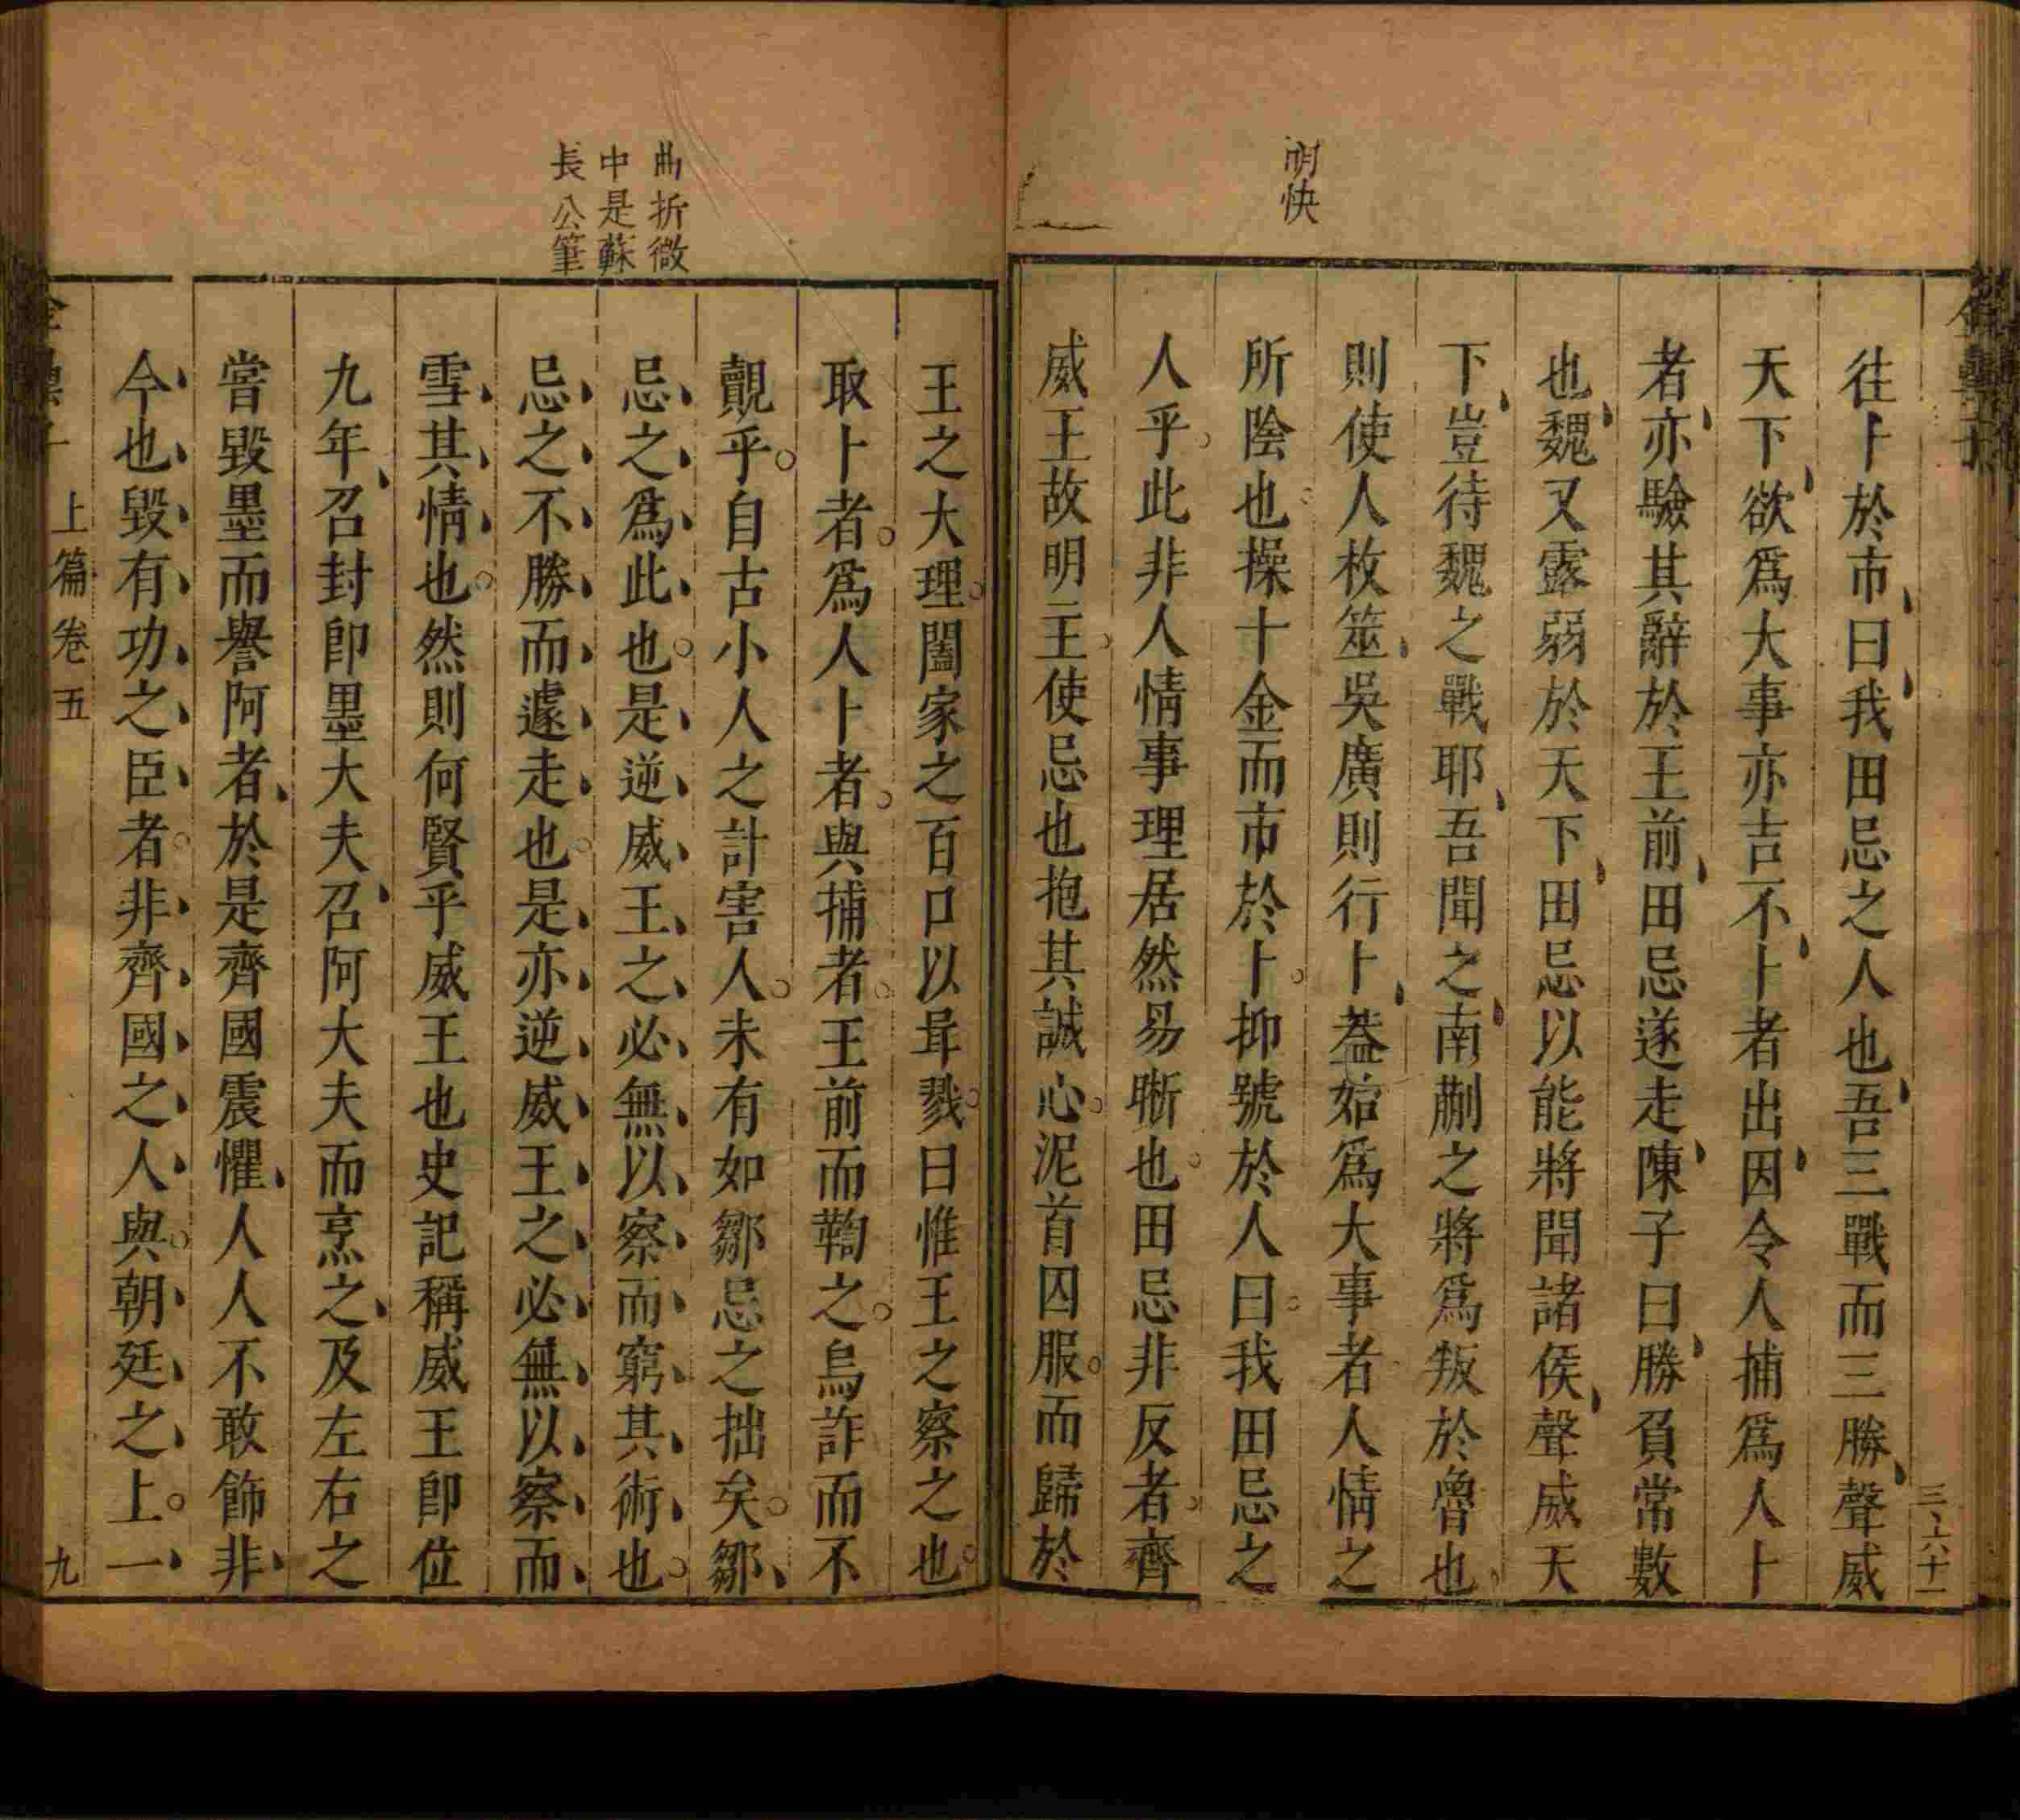 明快
三、六十一
往卜於市曰我田忌之人也吾三戰而三勝聲威
天下欲爲大事亦吉不卜者出因令人捕爲人卜
者亦驗其辭於王前田忌遂走陳子曰勝負常數
也魏又露弱於天下田忌以能將聞諸侯聲威天
下豈待魏之戰耶吾聞之南蒯之將爲叛於魯也
則使人枚筮吳廣則行卜葢始爲大事者人情之
所陰也操十金而市於卜抑號於人曰我田忌之
人乎此非人情事理居然易晰也田忌非反者齊
威王故明王使忌也抱其誠心泥首囚服而歸於
曲折微
中是蘇
長公筆
王之大理闔家之百口以幷戮曰惟王之察之也
取卜者爲人卜者與捕者王前而鞫之烏詐而不
覿乎自古小人之計害人未有如鄒忌之拙矣鄒
忌之爲此也是逆威王之必無以察而窮其術也
忌之不勝而遽走也是亦逆威王之必無以察而
雪其情也然則何賢乎威王也史記稱威王卽位
九年召封卽墨大夫召阿大夫而烹之及左右之
嘗毀墨而譽阿者於是齊國震懼人人不敢飾非
今也毀有功之臣者非齊國之人與朝廷之上一
上篇卷五
九